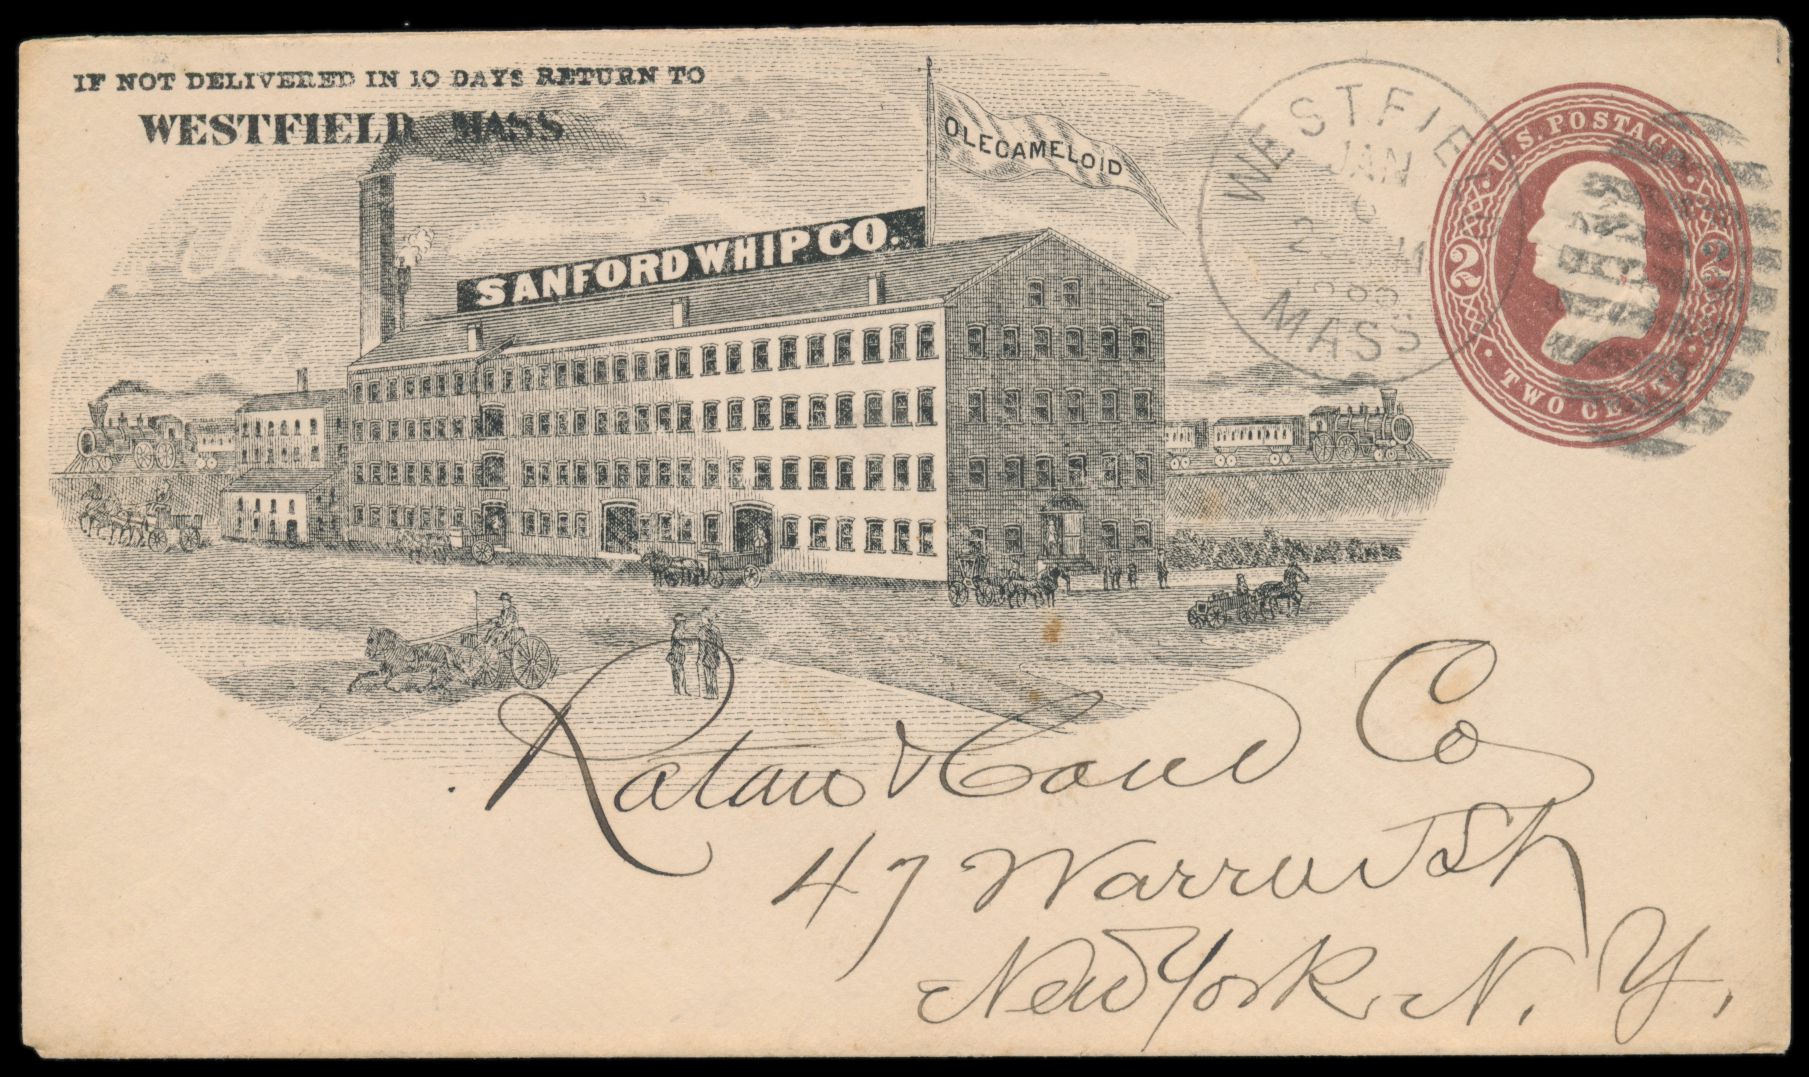 IF NOT DELIVERED IN 10 DAYS RETURN TO
WESTFIELD MASS
OLECAMELOID
SANFORD WHIP CO.
WESTFIELD
JAN
2
MASS
U.S. POSTAGE
2 2
TWO CENTS
Ratan & Cane Co
47 Warren St
New York N. Y.